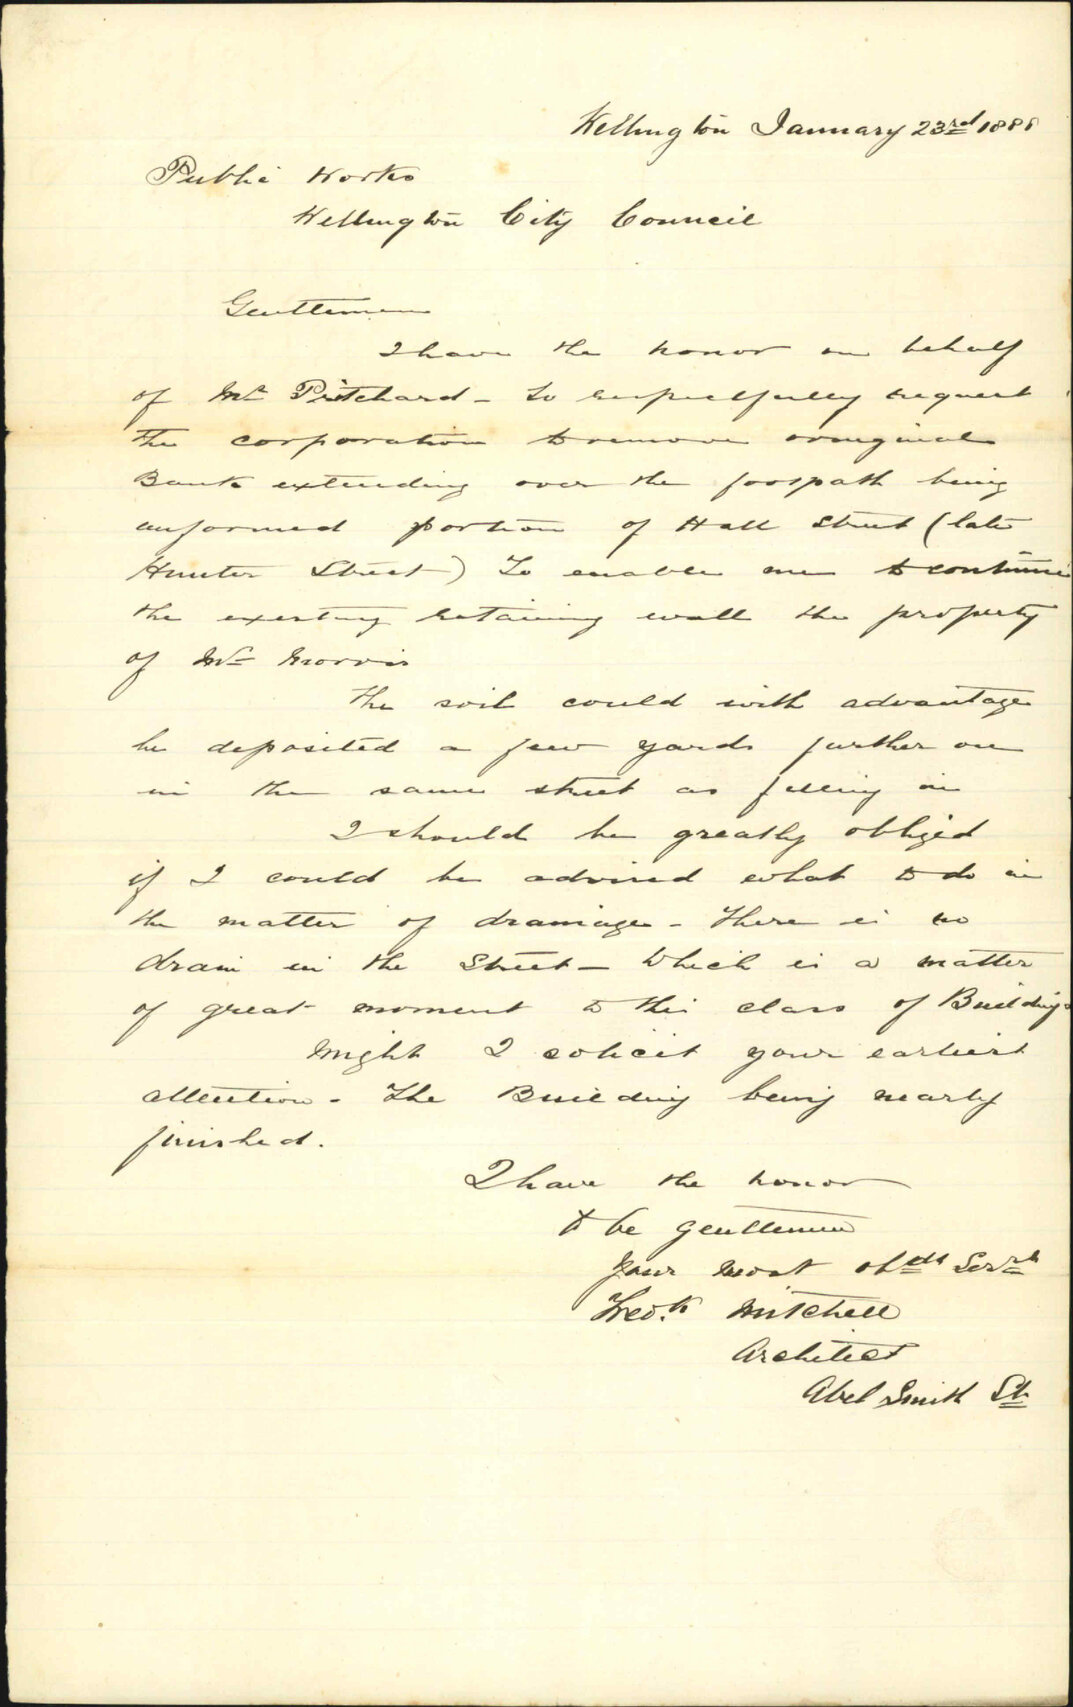 Wellington January 23rd 1888
Public Works
Wellington City Council
Gentlemen
I have the honor on behalf
of Mr Pritchard - to respectfully request
the corporation to remove original
Bank extending over the footpath being
unformed portion of Hall Street (late
Hunter Street) To enable me to continue
the existing retaining wall the property
of Mr Morris
The soil could with advantage
be deposited a few yards further on
in the same street as filling in
I should be greatly obliged
if I could be advised what to do in
the matter of drainage - There is no
drain in the Street - Which is a matter
of great moment to this class of Buildings
Might I solicit your earliest
attention - The Building being nearly
finished.
I have the honor
to be gentlemen
Your most obdt Servt
Fredk Mitchell
Architect
Abel Smith St